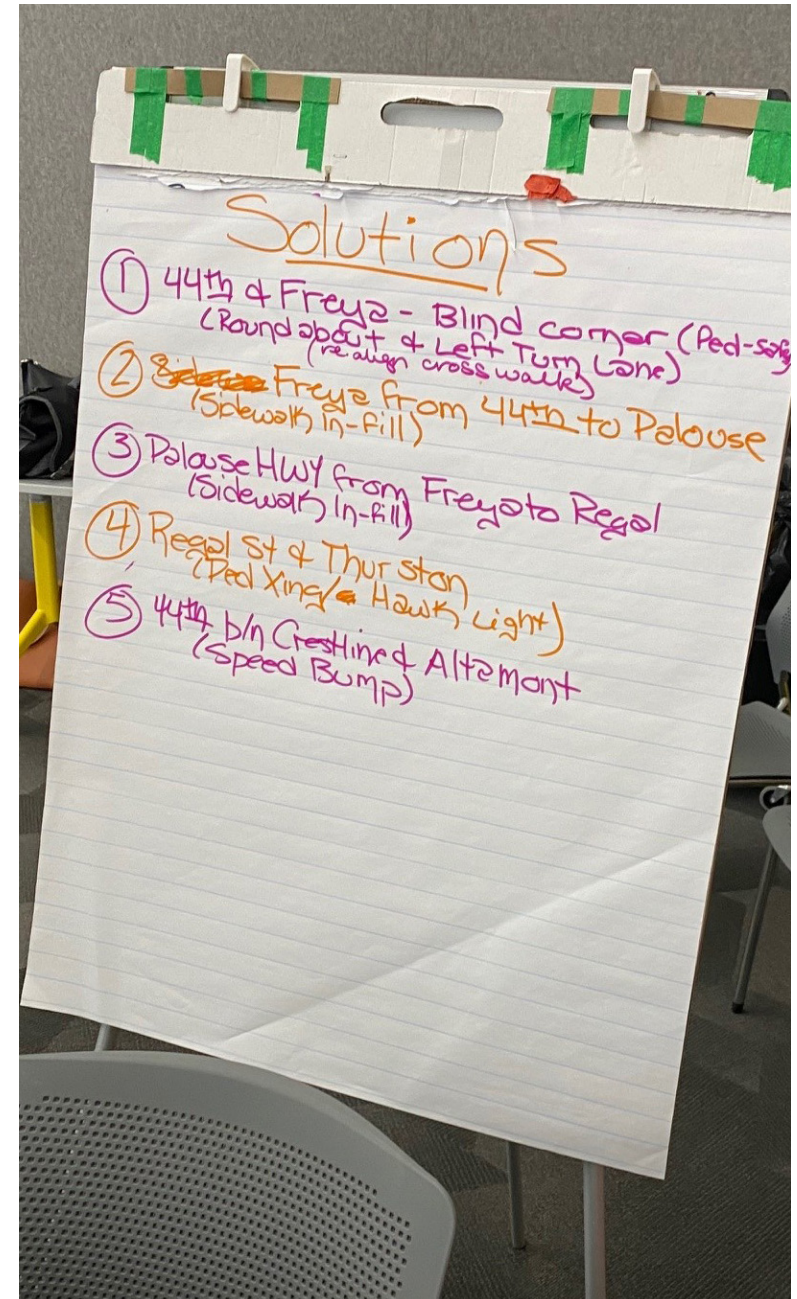 Solutions
① 44th & Freya - Blind corner (Ped-safety
(Roundabout & Left Turn Lane)
(realign crosswalks)
② Freya from 44th to Palouse
(Sidewalk in-fill)
③ Palouse HWY from Freya to Regal
(Sidewalk in-fill)
④ Regal St & Thurston
(Ped Xing/ Hawk Light)
⑤ 44th b/n Crestline & Altamont
(Speed Bump)